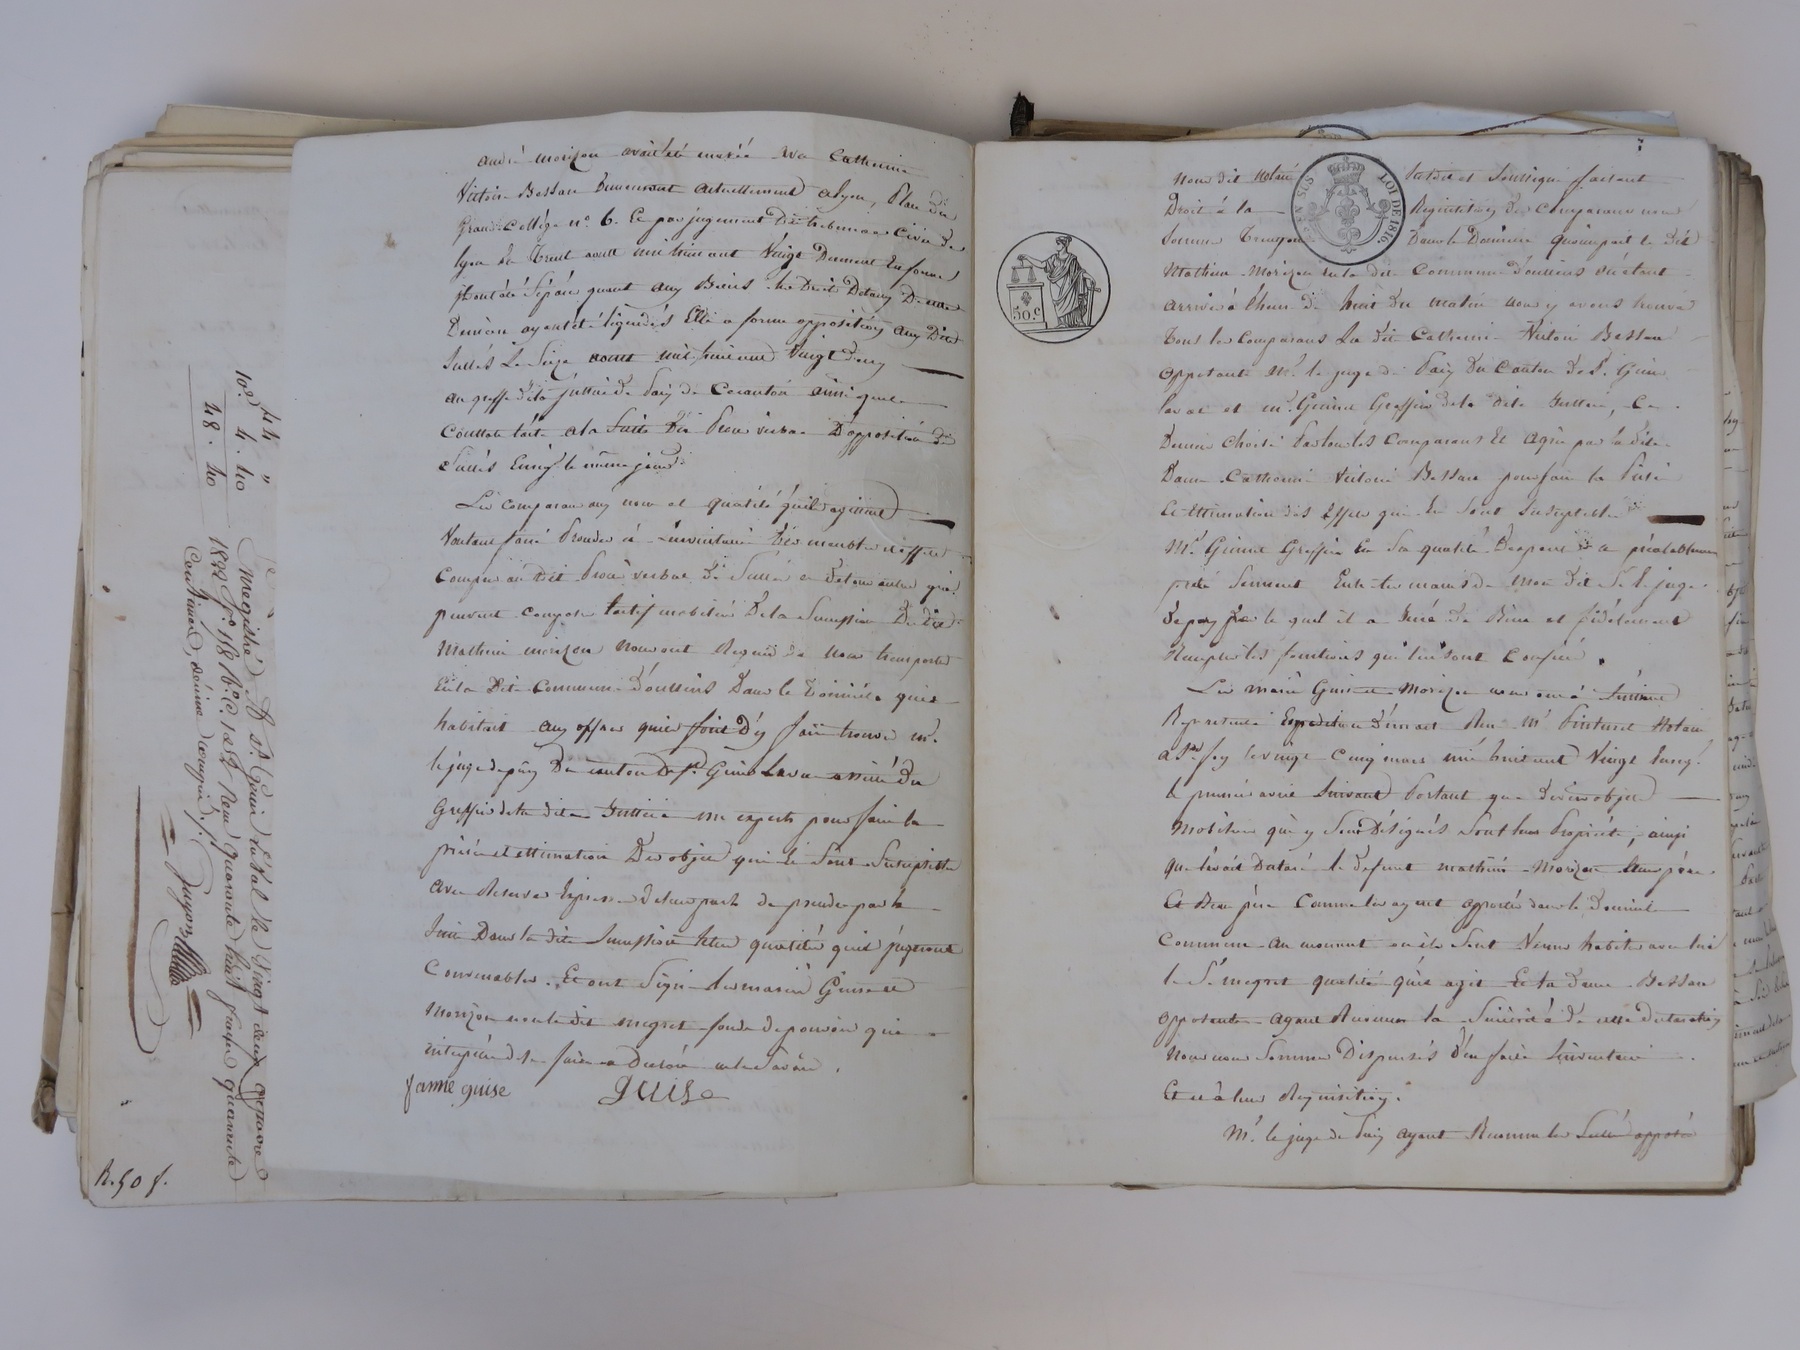 andré morizon avait été mariée avec Catherine
Victoire Bessan demeurant actuellement a lyon, Place du
Grand Collège n° 6. Et par jugement du tribunal Civil de
lyon du trent aout mil huit cent Vingt
Séparée quant aux Biens
ayant été liquidés Elle a formé opposition aux Dits
Scellés Le Seize aout mil huit cent Vingt deux
au greffe de la justice de Paix de Ce canton ainsi que le
Constate la Suite Du Procès verbal D'opposition de
Scellés le même jour
Les Comparans aux noms et qualités qu'ils agissent
Voulant faire Proceder à L'inventaire Des meubles et effets
Compris au Dit Procès verbal de Scellés et de tous autres qui
peuvent composer l'actif mobilier De la Succession Du Dit
Mathieu morizon Nous ont Requis de nous transporter
En la Dite Commune D'oullins Dans le Domicile qu'il
habitait aux offres qu'ils font D'y faire trouver mr
le juge de paix Du canton de St Genis Laval assisté Du
Greffier de la dite Justice un expert pour faire la
prisée et estimation Des objets qui En Sont Susceptible
avec Reserve Expresse De leur part de prendre par la
Suite Dans la dite Succession telle qualité qu'ils jugeront
Convenables. Et ont Signé les mariés Guise et
Morizon non le dit megret fondé de pouvoir qui
de le faire a Declaré ne le Savoir.
fanne guise guise
44 "
10e 4. 40
48. 40
Enregistré à St Genis Laval le Vingt deux
1822 fo 118 Ro C. 1 et 2 Reçu quarante huit francs quarante
Centimes, dixième compris.
Guyon
R. 50 f.
Nous dit Notaire Susdit et Soussigné faisant
Droit à la Requisition Des Comparans nous
Sommes Transporté Dans le Domicile qu'occupait le Dit
Mathieu Morizon en la dite Commune D'oullins où étant
arrivé à l'heure de huit Du matin nous y avons trouvé
Tous les Comparans La dite Catherine Victoire Bessan
opposante Mr. le juge de Paix Du Canton de St. Genis
Laval et mr. Guinet Greffier de la Dite Justice, Ce
Dernier Choisi Par tous les Comparans Et agréé par la Dite
Dame Catherine Victoire Bessan pour faire la Prisée
Et Estimation des Effets qui En Sont Susceptible
Mr. Guinet Greffier En Sa qualité D'expert a préalablement
prêté Serment Entre les mains de mon Dit Sr. le juge
De paix par le quel il a Juré de Bien et fidèlement
Remplir les fonctions qui lui sont Confiées.
Les mariés Guise et Morizon nous ont à l'instant
Représenté Expedition D'un acte Reçu Mr Notaire
a Ste foy le vingt Cinq mars mil huit cent Vingt Enreg.
le premier avril Suivant Portant que Divers objets
Mobiliers qui y Sont Désignés Sont leur Propriété, ainsi
que l'avait Declaré le Defunt mathieu Morizon leur père
Et Beau père Comme les ayant apportés dans le Domicile
Commun au moment où ils Sont Venus habiter avec lui
le Sr. megret qualité qu'il agit Et la Dame Bessan
opposante ayant Reconnu la Sincérité de cette Declaration
Nous nous Sommes Dispensés D'en faire Inventaire
Et ce à leur Requisition.
Mr. le juge de Paix ayant Reconnu les Scellés apposés
EN SUS
LOI DE 1816
50.c